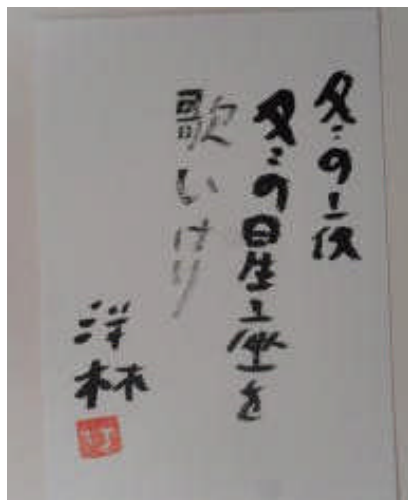 冬の夜
冬の星座を
歌いけり
洋林